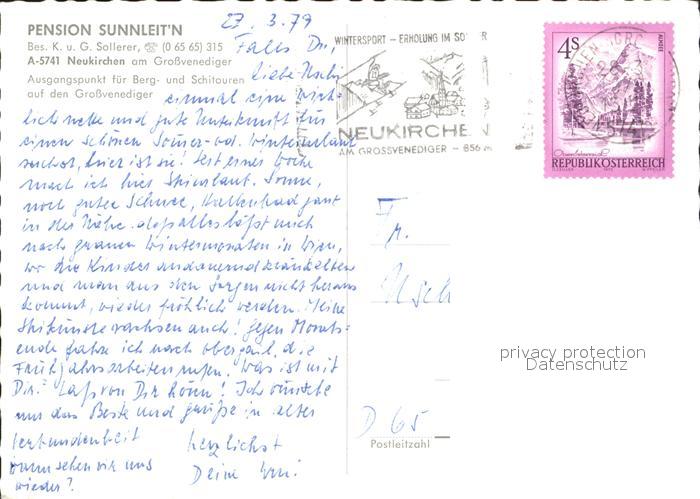 PENSION SUNNLEIT'N
Bes. K. u. G. Sollerer, ☎ (0 65 65) 315
A-5741 Neukirchen am Großvenediger
Ausgangspunkt für Berg- und Schitouren
auf den Großvenediger
27. 3. 79
Falls Du,
liebe Uschi
einmal eine wirk-
lich nette und gute Unterkunft für
einen schönen Sommer- od. Winterurlaub
suchst, hier ist sie! Seit einer Woche
mach ich hier Skiurlaub. Sonne,
noch guter Schnee, Hallenbad ganz
in der Nähe, das alles läßt mich
nach grauen Wintermonaten in Wien,
wo die Kinder andauernd kränkelten
und man aus den Sorgen nicht heraus
kommt, wieder fröhlich werden. Meine
Skikünste wachsen auch! Gegen Monats-
ende fahre ich nach die
Frühjahrsarbeiten rufen. Was ist mit
Dir? Laß von Dir hören! Ich wünsche
nur das Beste und grüße in alter
Verbundenheit herzlichst
wann sehen wir uns Deine
wieder?
WINTERSPORT – ERHOLUNG IM SO ER
NEUKIRCHEN
AM GROSSVENEDIGER – 856 m
4S
ALMSEE
REPUBLIK ÖSTERREICH
Fr.
Usch
D 65
Postleitzahl
privacy protection
Datenschutz